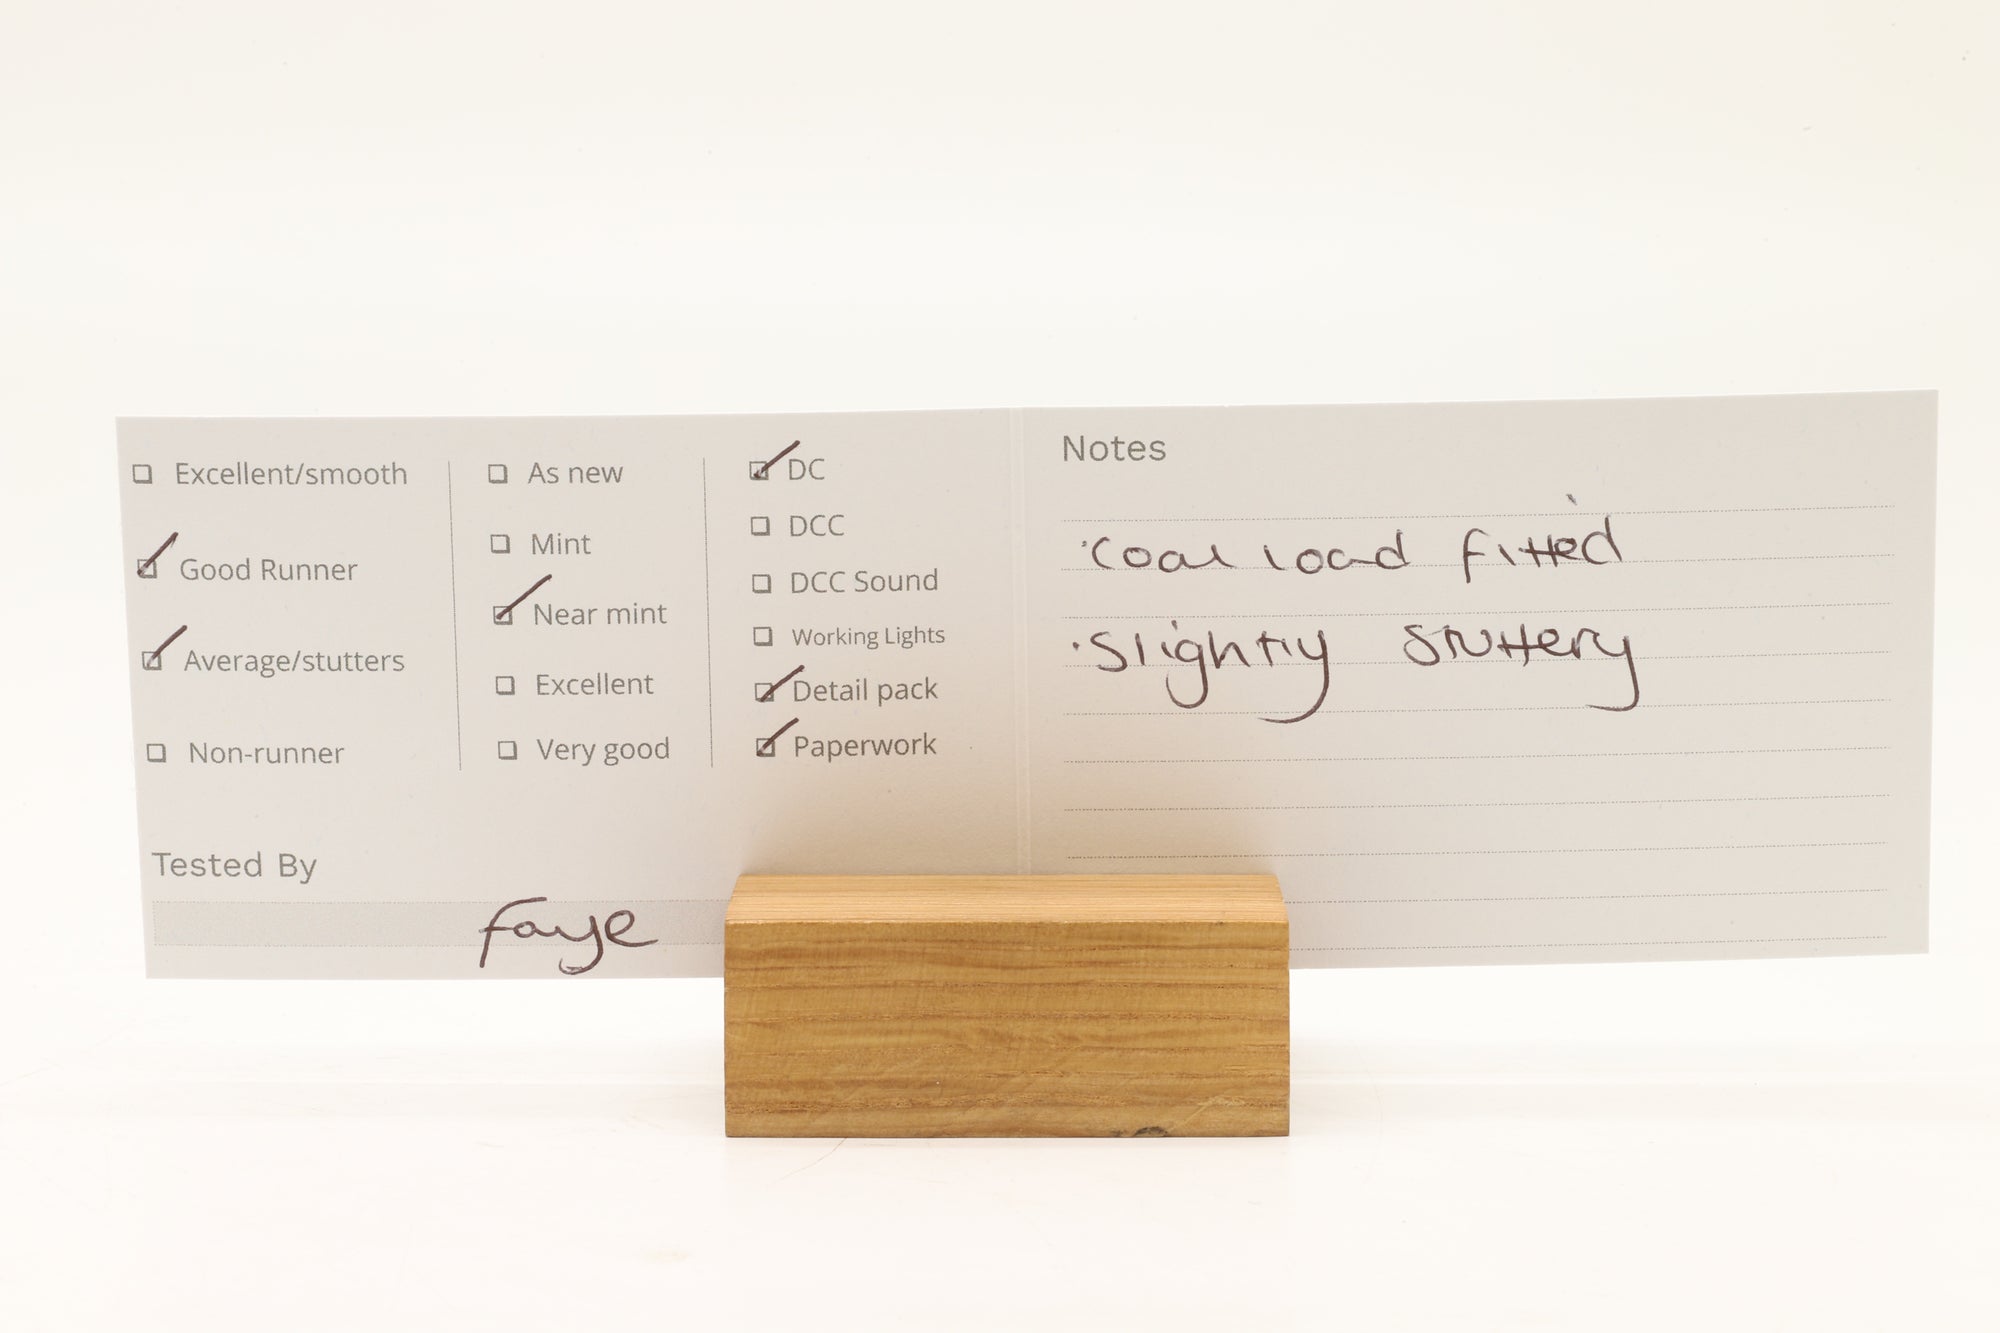 Excellent/smooth
Good Runner
Average/stutters
Non-runner
As new
Mint
Near mint
Excellent
Very good
DC
DCC
DCC Sound
Working Lights
Detail pack
Paperwork
Tested By
Faye
Notes
·Coal load fitted
·Slightly stuttery